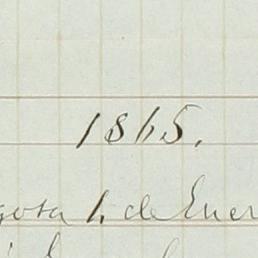 1865.
gosa 1. de Ener